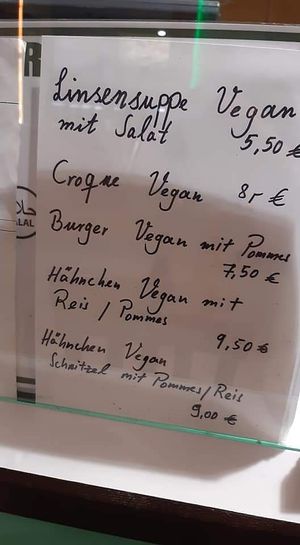 R
Linsensuppe Vegan
mit Salat 5,50 €
Croque Vegan 8,- €
Burger Vegan mit Pommes
7,50 €
Hähnchen Vegan mit
Reis / Pommes
9,50 €
Hähnchen Vegan
Schnitzel mit Pommes/Reis
9,00 €